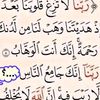 رَبَّنَا لَا تُزِغْ قُلُوبَنَا بَعْدَ
إِذْ هَدَيْتَنَا وَهَبْ لَنَا مِن لَّدُنكَ
رَحْمَةً إِنَّكَ أَنتَ الْوَهَّابُ
رَبَّنَا إِنَّكَ جَامِعُ النَّاسِ ...؟
لَا رَيْبَ فِيهِ إِنَّ اللَّهَ لَا